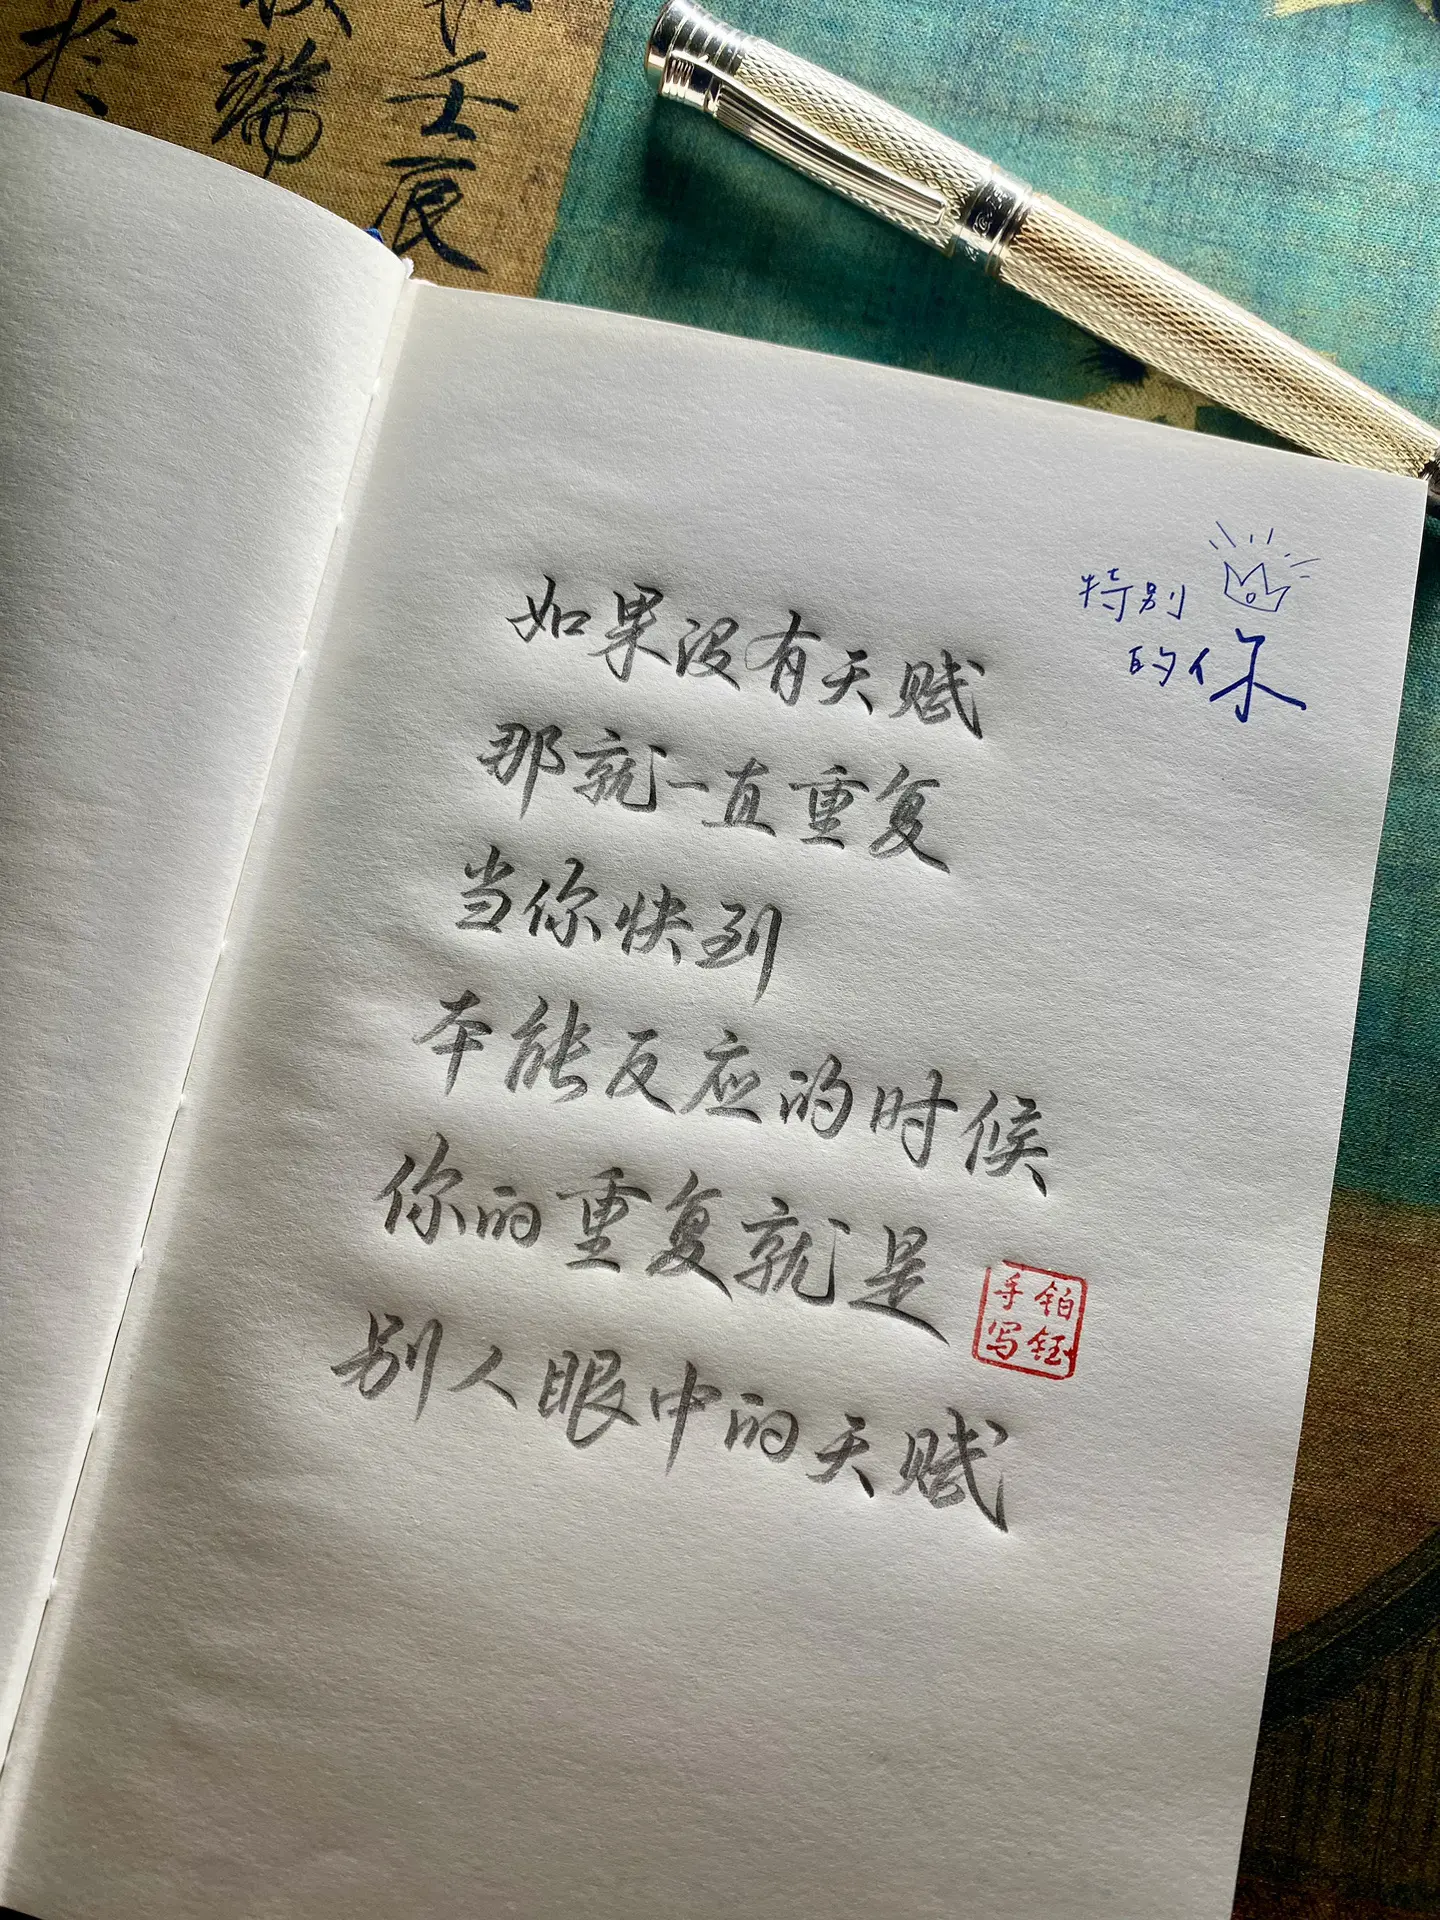 壬辰
端
於
特别
的你
如果没有天赋
那就一直重复
当你快到
本能反应的时候
你的重复就是
别人眼中的天赋
铂钰
手写